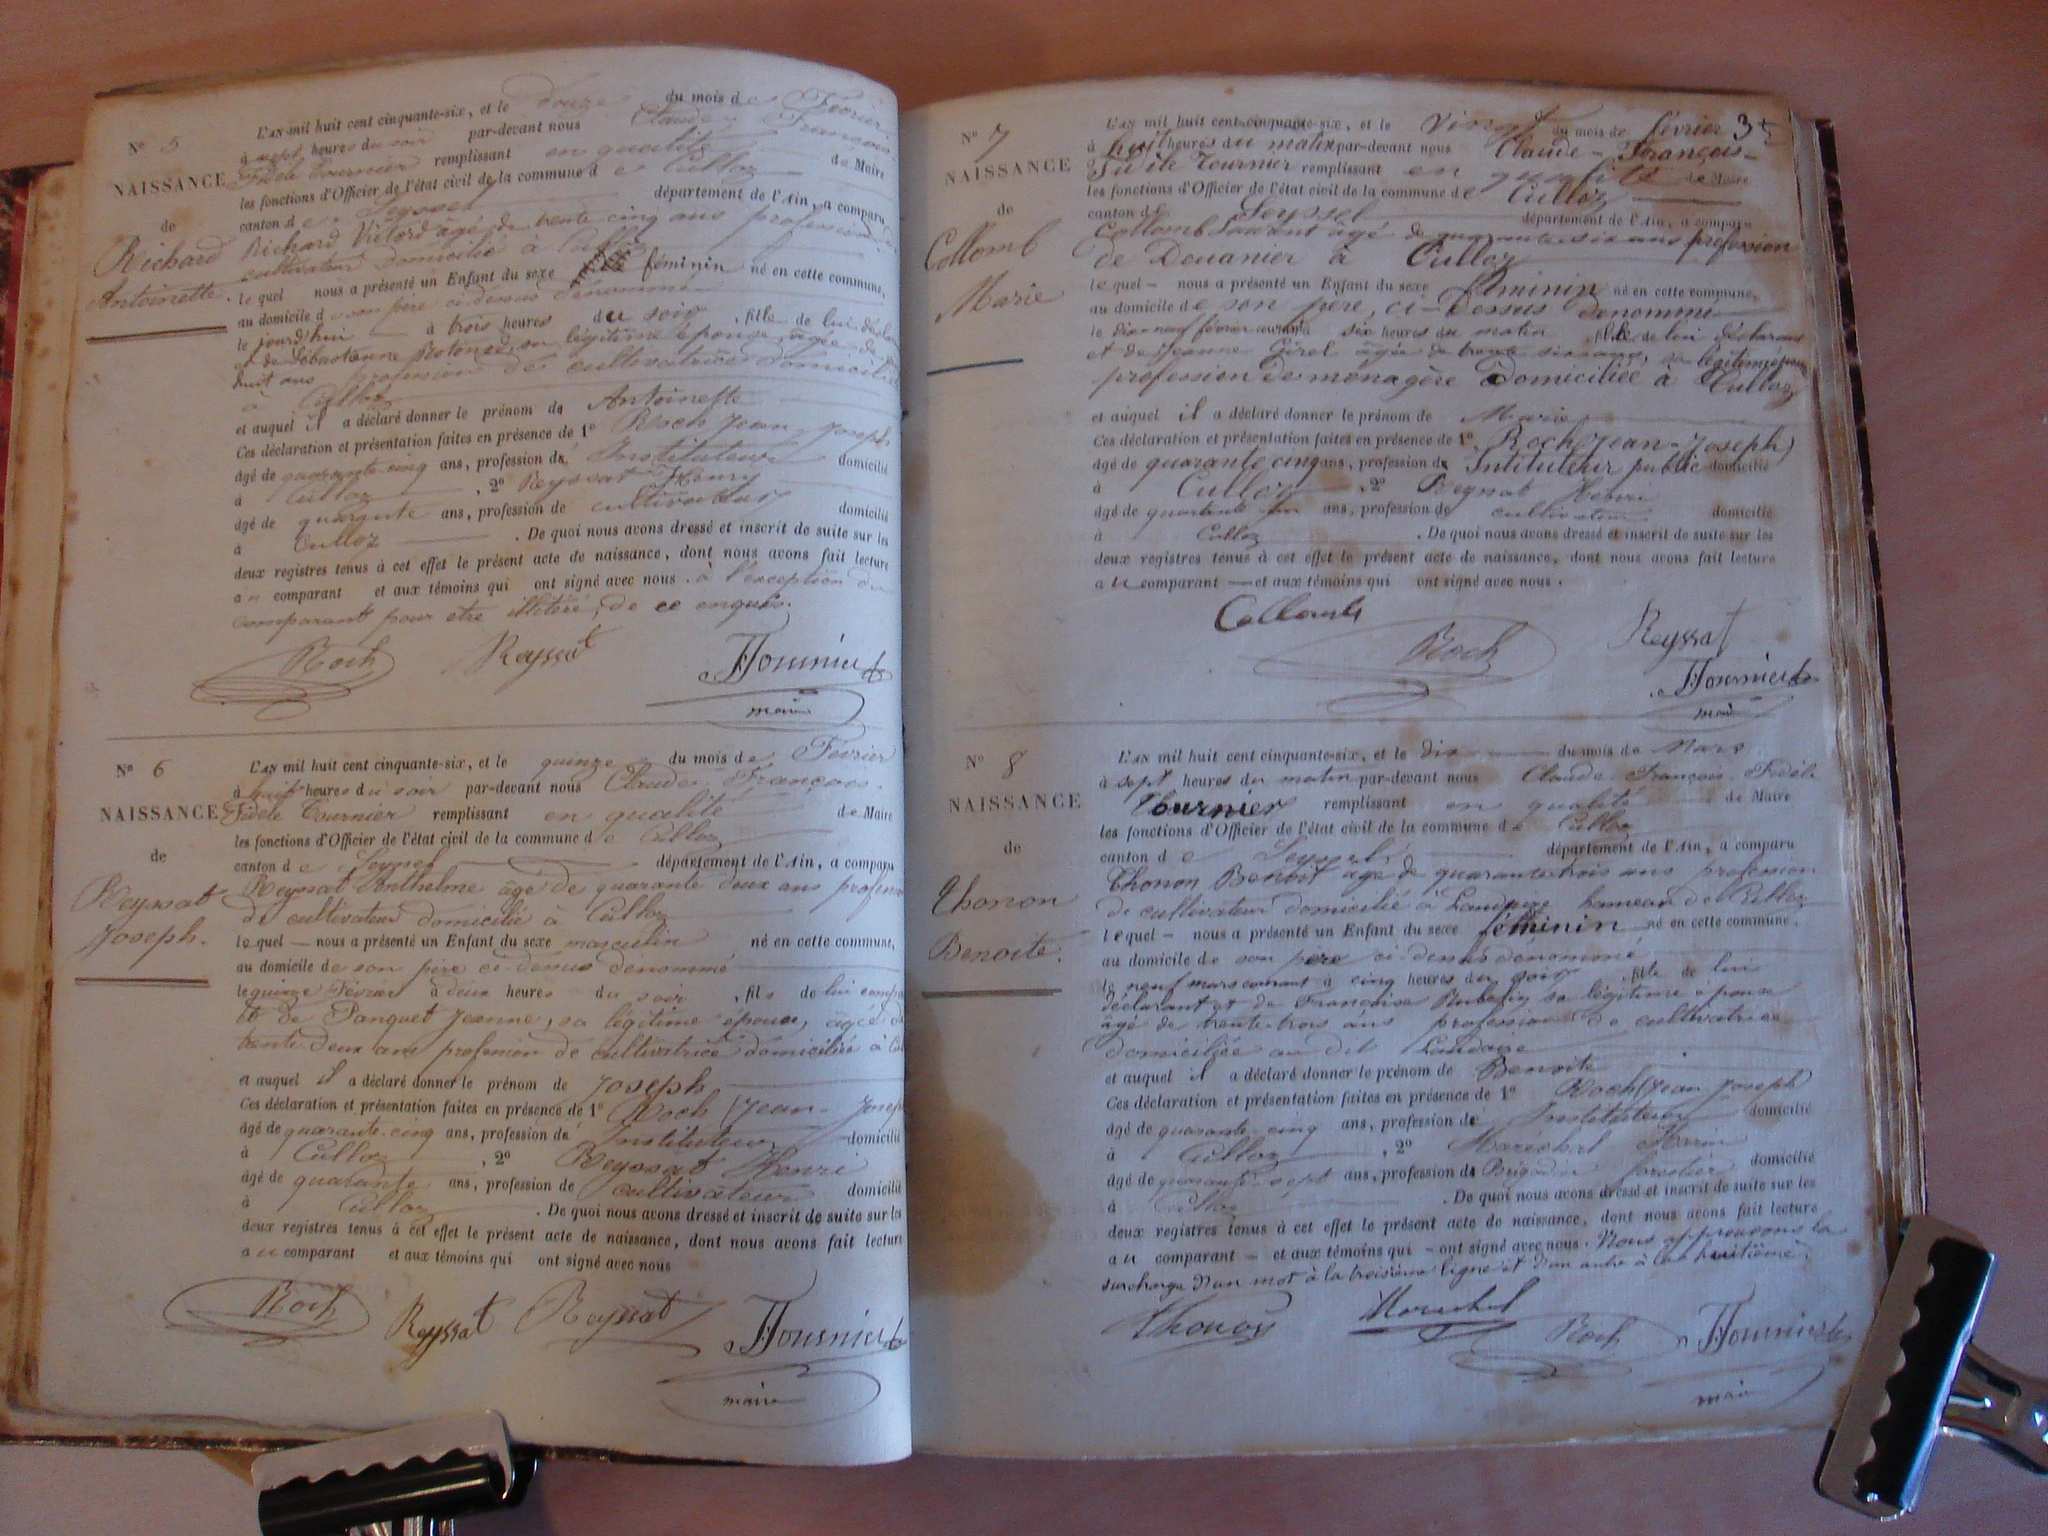 N° 5
NAISSANCE
de
Richard
Antoinette.
L'AN mil huit cent cinquante-six, et le douze du mois de Février
à sept heures du soir par-devant nous Claude François
Fidèle Tournier remplissant en qualité de Maire
les fonctions d'Officier de l'état civil de la commune de Culloz
canton de Seyssel département de l'Ain, a comparu
Richard Victor âgé de trente cinq ans profession de
cultivateur domicilié à Culloz
lequel nous a présenté un Enfant du sexe féminin né en cette commune,
au domicile de son père ci-dessus dénommé
le jourd'hui à trois heures du soir, fille de lui déclarant
et de Sébastienne sa légitime épouse, âgée de
huit ans profession de cultivatrice domiciliée
à Culloz
et auquel il a déclaré donner le prénom de Antoinette
Ces déclaration et présentation faites en présence de 1° Roch Jean-Joseph
âgé de quarante-cinq ans, profession de Instituteur domicilié
à Culloz, 2° Reyssat Henry
âgé de quarante ans, profession de cultivateur domicilié
à Culloz. De quoi nous avons dressé et inscrit de suite sur les
deux registres tenus à cet effet le présent acte de naissance, dont nous avons fait lecture
au comparant et aux témoins qui ont signé avec nous. à l'exception du
comparant pour être illitéré, de ce enquis.
Roch Reyssat Tournier
maire
N° 6
NAISSANCE
de
Reyssat
Joseph.
L'AN mil huit cent cinquante-six, et le quinze du mois de Février
à huit heures du soir par-devant nous Claude François
Fidèle Tournier remplissant en qualité de Maire
les fonctions d'Officier de l'état civil de la commune de Culloz
canton de Seyssel département de l'Ain, a comparu
Reyssat Anthelme âgé de quarante deux ans profession
de cultivateur domicilié à Culloz
lequel nous a présenté un Enfant du sexe masculin né en cette commune,
au domicile de son père ci-dessus dénommé
le quinze Février à deux heures du soir, fils de lui
et de Panquet Jeanne, sa légitime épouse, âgée de
trente deux ans profession de cultivatrice domiciliée à
et auquel il a déclaré donner le prénom de Joseph
Ces déclaration et présentation faites en présence de 1° Roch Jean-Joseph
âgé de quarante-cinq ans, profession de Instituteur domicilié
à Culloz, 2° Reyssat Henri
âgé de quarante ans, profession de cultivateur domicilié
à Culloz. De quoi nous avons dressé et inscrit de suite sur les
deux registres tenus à cet effet le présent acte de naissance, dont nous avons fait lecture
au comparant et aux témoins qui ont signé avec nous
Roch Reyssat Reyssat Tournier
maire
3
N° 7
NAISSANCE
de
Collomb
Marie
L'AN mil huit cent cinquante-six, et le Vingt du mois de février
à huit heures du matin par-devant nous Claude-François-
Fidèle Tournier remplissant en qualité de Maire
les fonctions d'Officier de l'état civil de la commune de Culloz
canton de Seyssel département de l'Ain, a comparu
Collomb Laurent âgé de quarante-six ans profession
de Douanier à Culloz
lequel nous a présenté un Enfant du sexe féminin né en cette commune,
au domicile de son père, ci-Dessus Dénommé
le dix-neuf février courant à six heures du matin, fille de lui déclarant
et de Jeanne Girel âgée de trente six ans, sa légitime épouse
profession de ménagère Domiciliée à Culloz
et auquel il a déclaré donner le prénom de Marie
Ces déclaration et présentation faites en présence de 1° Roch (Jean-Joseph)
âgé de quarante cinq ans, profession de Intituteur public domicilié
à Culloz, 2° Reyssat Henri
âgé de quarante un ans, profession de cultivateur domicilié
à Culloz. De quoi nous avons dressé et inscrit de suite sur les
deux registres tenus à cet effet le présent acte de naissance, dont nous avons fait lecture
au comparant et aux témoins qui ont signé avec nous.
Collomb
Roch Reyssat
Tournier
maire
N° 8
NAISSANCE
de
Thonon
Benoite.
L'AN mil huit cent cinquante-six, et le dix du mois de Mars
à sept heures du matin par-devant nous Claude-François-Fidèle
Tournier remplissant en qualité de Maire
les fonctions d'Officier de l'état civil de la commune de Culloz
canton de Seyssel département de l'Ain, a comparu
Thonon Benoit âgé de quarante-trois ans profession
de cultivateur domicilié à Landaize hameau de Culloz
lequel nous a présenté un Enfant du sexe féminin né en cette commune.
au domicile de son père ci-dessus dénommé
le neuf mars courant à cinq heures du soir, fille de lui
déclarant et de Françoise sa légitime épouse
âgé de trente-trois ans profession de cultivatrice
domiciliée au dit Landaize
et auquel il a déclaré donner le prénom de Benoite
Ces déclaration et présentation faites en présence de 1° Roch (Jean Joseph
âgé de quarante-cinq ans, profession de Instituteur domicilié
à Culloz, 2° Maréchal Marin
âgé de quarante-sept ans, profession de Brigadier forestier domicilié
à Culloz. De quoi nous avons dressé et inscrit de suite sur les
deux registres tenus à cet effet le présent acte de naissance, dont nous avons fait lecture
au comparant et aux témoins qui ont signé avec nous. Nous approuvons la
surcharge d'un mot à la troisième ligne et d'un autre à la huitième.
Thonon Marechal Roch Tournier
maire